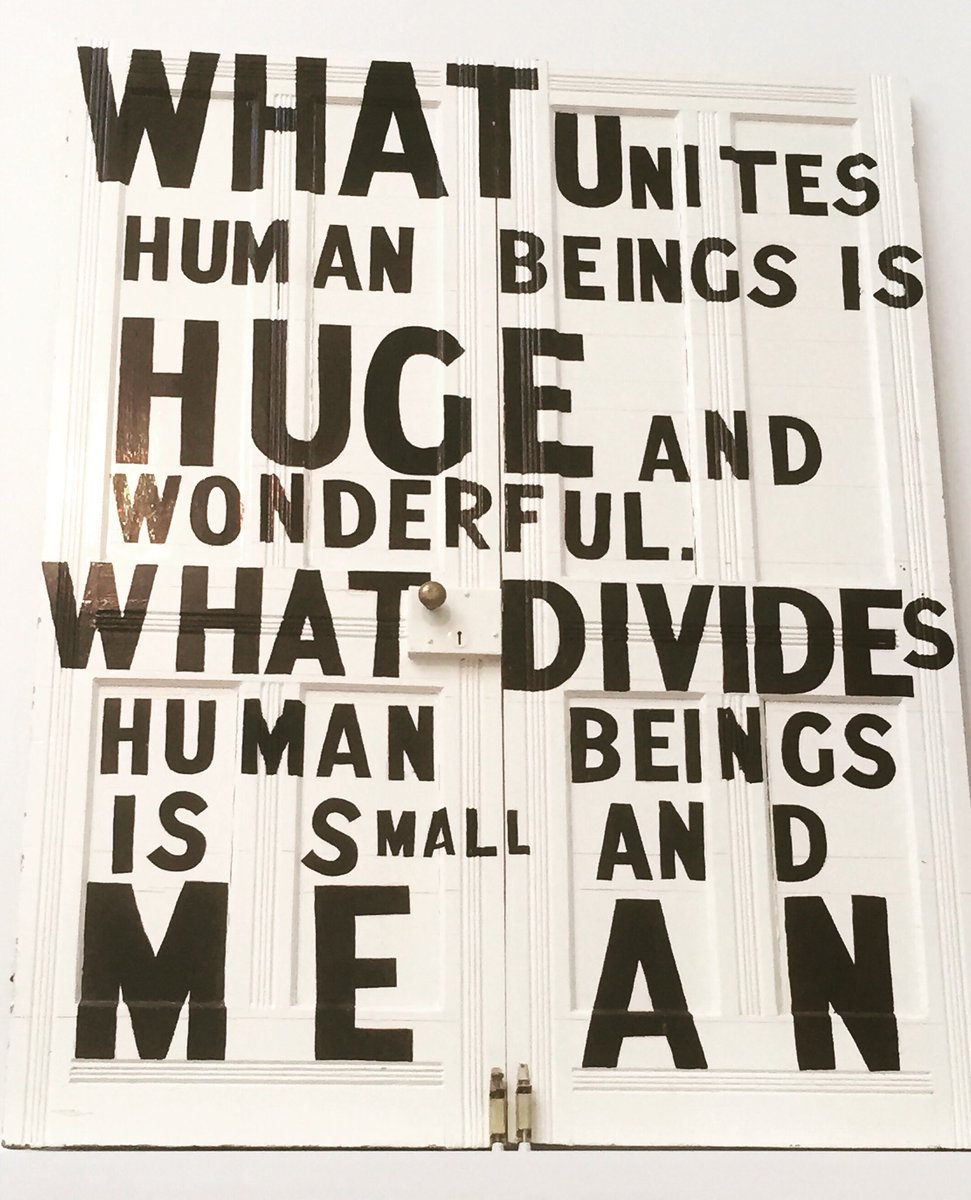 WHAT UNITES
HUMAN BEINGS IS
HUGE AND
WONDERFUL.
WHAT DIVIDES
HUMAN BEINGS
IS SMALL AND
MEAN